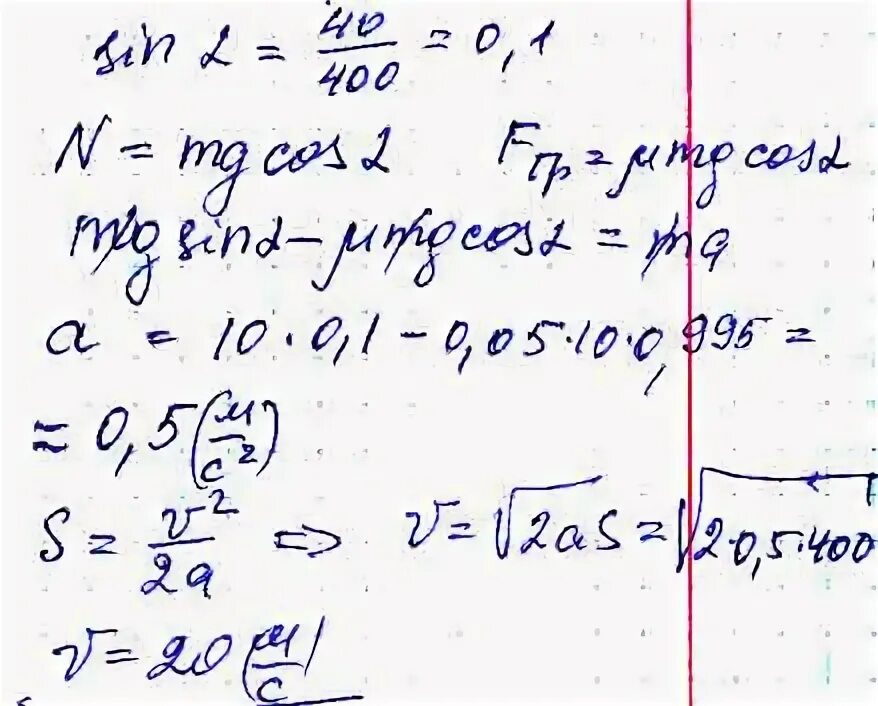 sin α = 40/400 = 0,1
N = mg cos α    Fтр = μmg cos α
mg sin α – μmg cos α = ma
a = 10·0,1 – 0,05·10·0,995 =
≈ 0,5 (м/с²)
S = v²/2a ⇒ v = √2aS = √2·0,5·400
v = 20 (м/с)